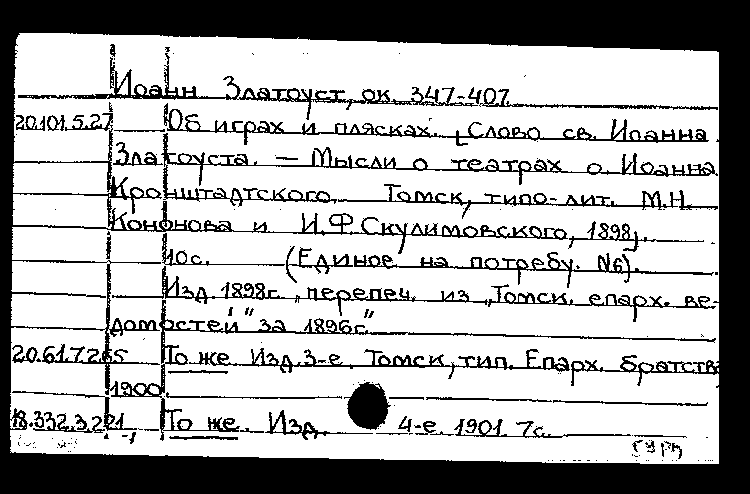 Иоанн Златоуст, ок. 347-407
20.101.5.27 Об играх и плясках. [Слово св. Иоанна
Златоуста. — Мысли о театрах о. Иоанна
Кронштадтского. Томск, типо-лит. М.Н.
Кононова и И.Ф.Скулимовского, 1898].
10с. (Единое на потребу. №6).
Изд. 1898г. перепеч. из „Томск. епарх. ве-
домостей" за 1896г."
20.61.7.265 То же. Изд.3-е. Томск, тип. Епарх. братства
1900.
18.332.3.221 То же. Изд. 4-е. 1901. 7с.